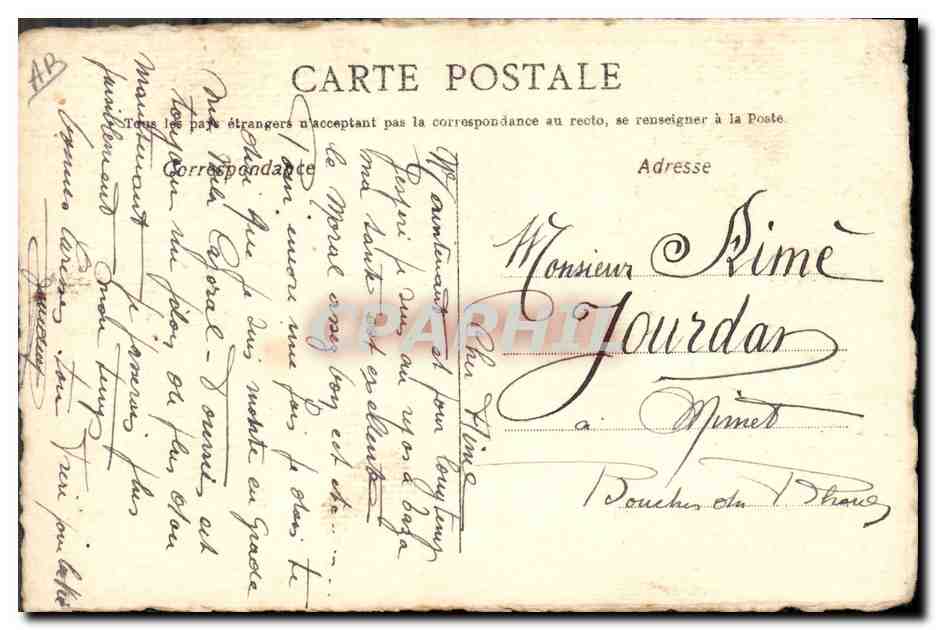 AB
CARTE POSTALE
Tous les pays étrangers n'acceptant pas la correspondance au recto, se renseigner à la Poste.
Correspondance
Adresse
Monsieur Aimé
Jourdan
à Mimet
Bouches du Rhône
Cher Aimé
Maintenant et pour longtemps
j'espere je suis au repos à
ma santé est exelente
le Moral assez bon est
encore une fois je dois te
que je suis monté en Grade
me voila Caporal
toujour un ou plus
Maintenant je passerai plus
mon temps
bonnes Caresses ton
CPAPHIL